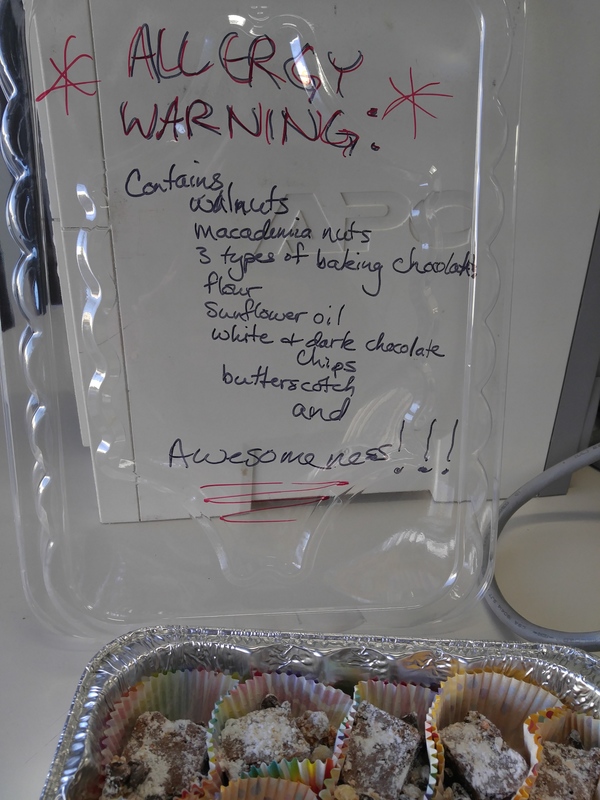 ALLERGY
WARNING:
Contains
walnuts
macadamia nuts
3 types of baking chocolate
flour
sunflower oil
white & dark chocolate
chips
butterscotch
and
Awesomeness!!!
APC